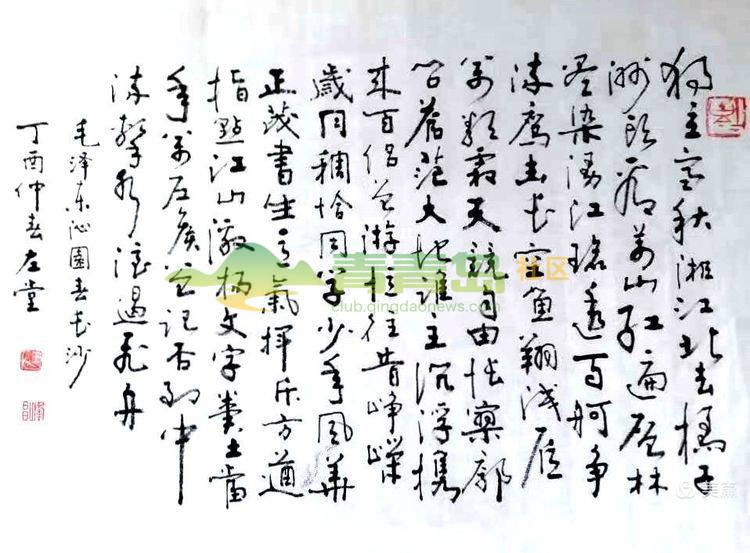 獨立寒秋湘江北去橘子
洲頭看萬山紅遍层林
尽染漫江碧透百舸争
流鷹击长空魚翔浅底
萬類霜天競自由怅寥廓
问苍茫大地誰主沉浮携
来百侣曾游憶往昔峥嵘
歲月稠恰同学少年风華
正茂書生意氣挥斥方遒
指點江山激扬文字粪土當
年萬户侯曾记否到中
流擊水浪遏飞舟
毛泽东沁園春长沙
丁酉仲春左堂
青青岛社区
club.qingdaonews.com
美篇